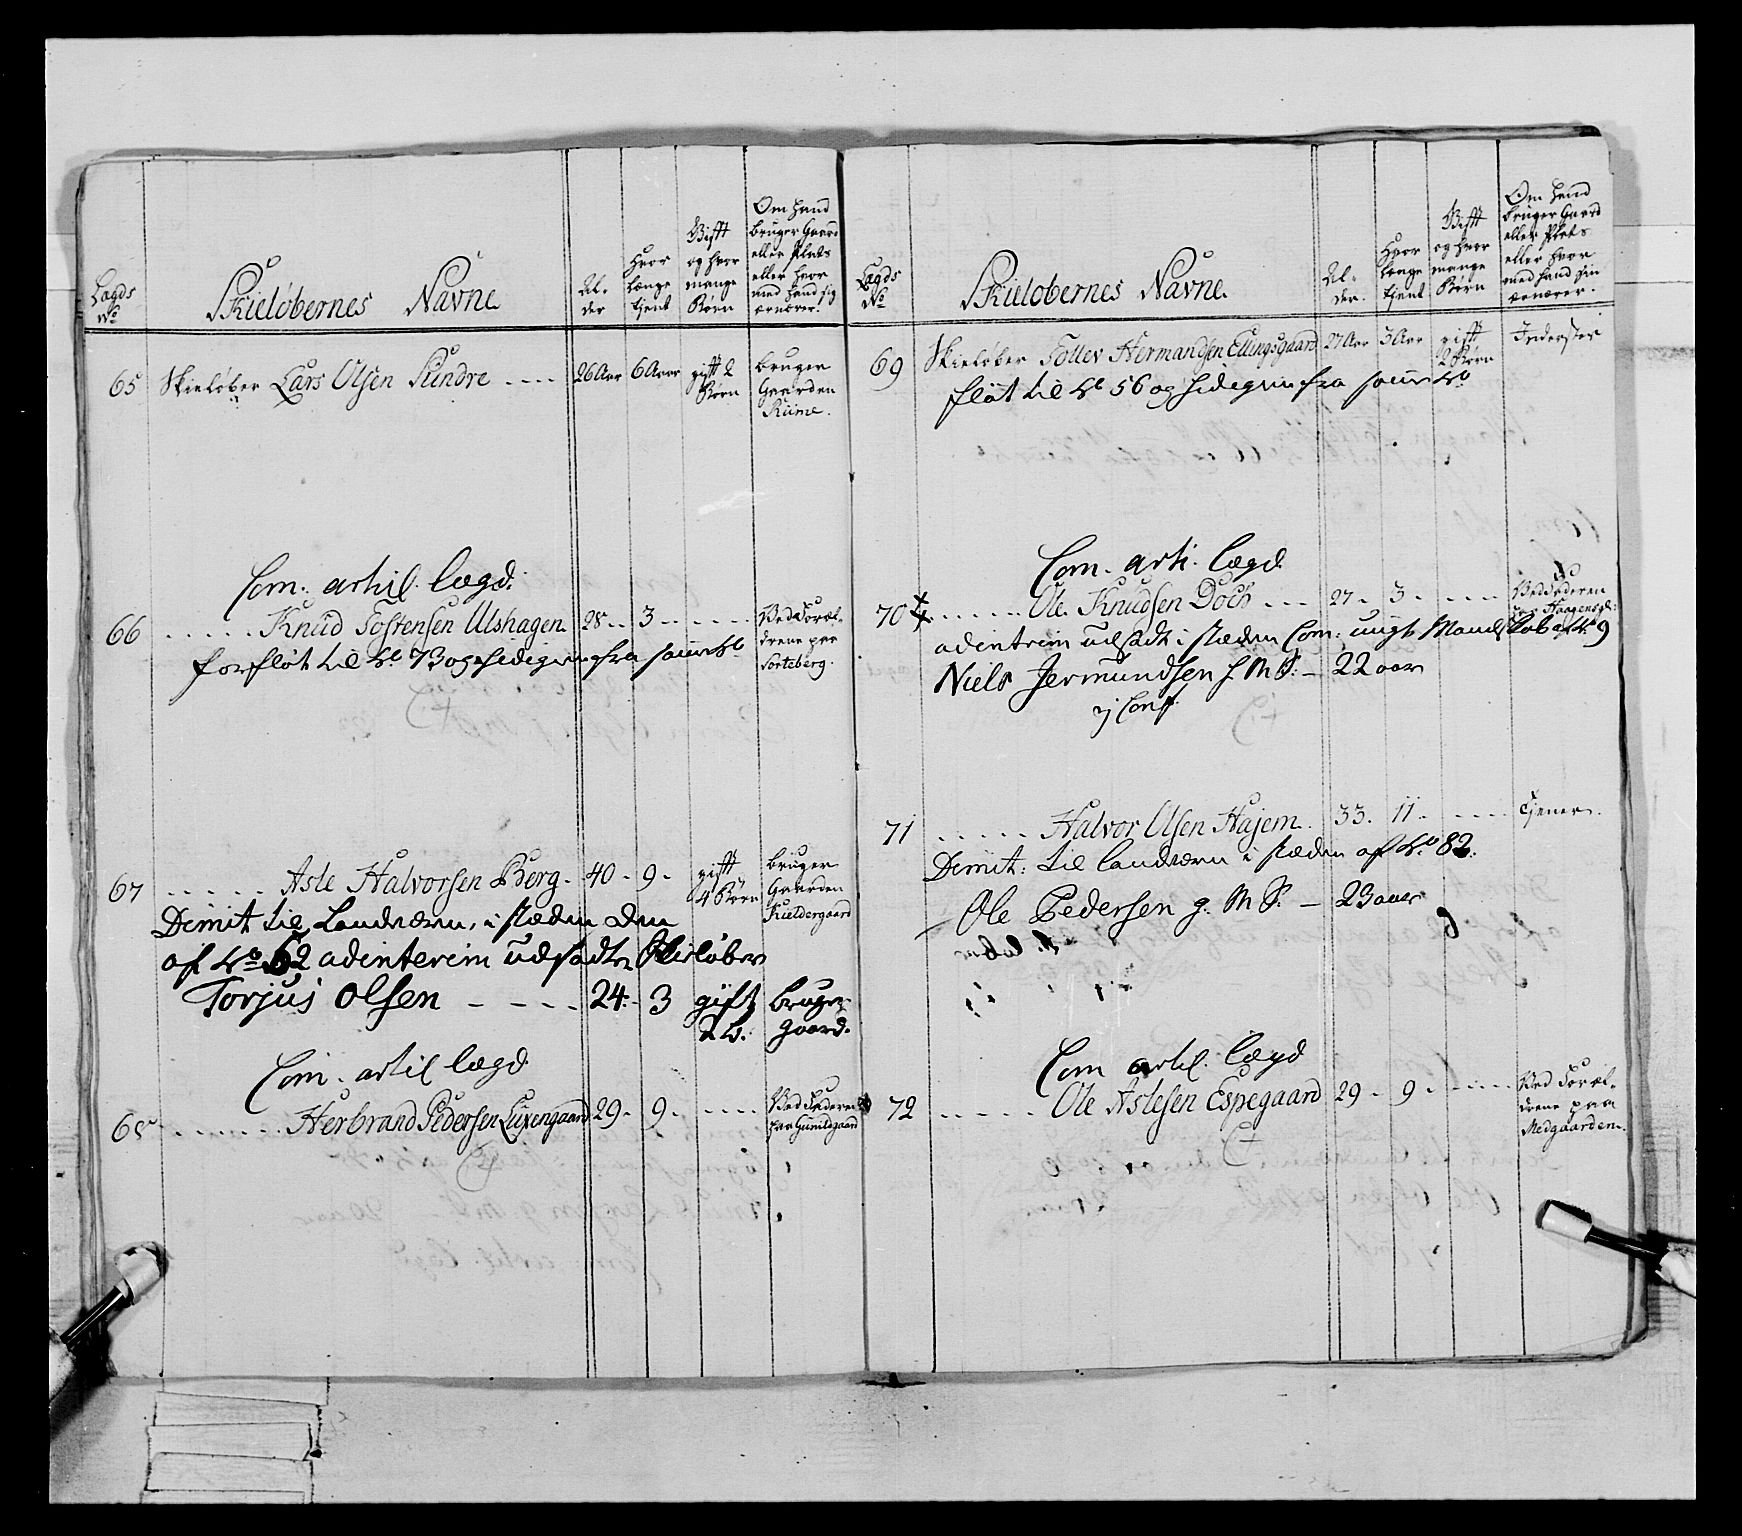 Lægds No
Skieløbernes Navne
Al-
der
Hvor
længe
tjent
Gift
og hvor
mange
Børn
Om hand
bruger Gaard
eller Plads
eller hvor
med hand sig
ernærer.
65 Skieløber Lars Olsen Sundre .... 26 Aar 6 Aar gift 2 Børn bruger Gaarden Riime.
Com. artil. lægd.
66 ..... Knud Tostensen Ulshagen. 28 .. 3 ...... Ved Foræl-
drene paa
Torteberg.
forfløt til No 73 og hidegien fra samme No
67 ...... Asle Halvorsen Berg. 40 - 9 - gift 4 Børn bruger Gaarden Kieldergaard
Dimit. til Landværn, i stæden den
af No 52 adinterim udsadte Skieløber
Torjus Olsen - - - - 24 - 3 gift 2 b. bruger gaard.
Com. artil lægd
68 ...... Herbrand Pedersen 29 - 9 - ..... Ved Faderen paa Gunildgaard
Lægds No
Skieløbernes Navne.
Al-
der.
Hvor
længe
tjent
Gift
og hvor
mange
Børn
Om hand
bruger Gaard
eller Plads
eller hvor
med hand sin
ernærer.
69 Skieløber Tollev Hermandsen Ellingsgaard 27 Aar 3 Aar gift 2 Børn Inderster
fløt til No 56 og hidegien fra samme No
Com. arti. lægd
70 ...... Ole Knudsen Doch ... 27 - 3 - ..... Ved Faderen paa
adinterim udsadt i stæden Com. ungt Mandskab af No 9
Niels Jermundsen f. M S: — 22 aar
ej Conf.
71 ..... Halvor Olsen Hajem. 33. 11. ..... Tjener.
Dimit: til landværn i stæden af No 82.
Ole Pedersen g. M S. — 23 aar
Com artil. lægd
72 ...... Ole Aslesen Espegaard 29 - 9 - ..... Ved Foræl-
drene paa
Medgaarden.